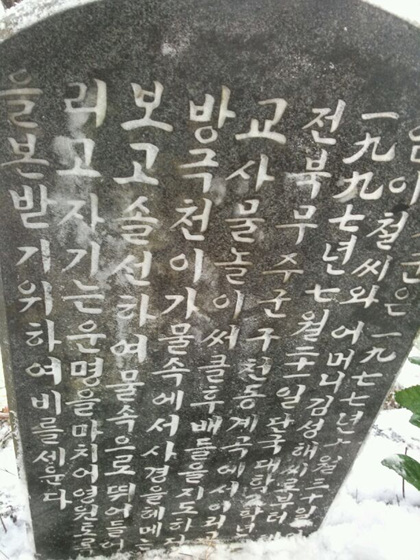 준은一九七七년十월三十일
철씨와어머니김성해씨로부터
一九九七년七월二十일단국대학
전북무주군구천동계곡에서
교사물놀이써클후배들을지도하
방극천이가물속에서사경을헤메는
보고솔선하여물속으로뛰어들어
리고자기는운명을마치어영원토록
을본받기위하여비를세운다